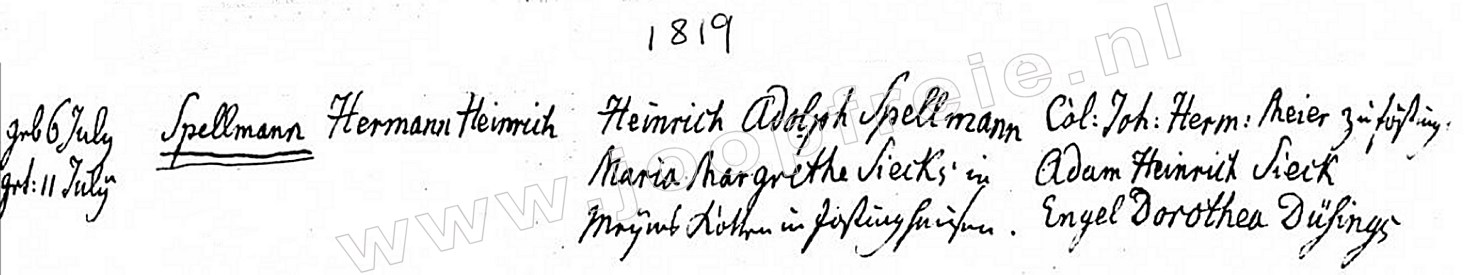 1819
geb 6 July Spellmann Hermann Heinrich Heinrich Adolph Spellmann Col: Joh: Herm: Meier zu
get: 11 July Maria Margrethe Siecks in Adam Heinrich Sieck
Meyers Kotten in Engel Dorothea Düsings
www.joopfreie.nl